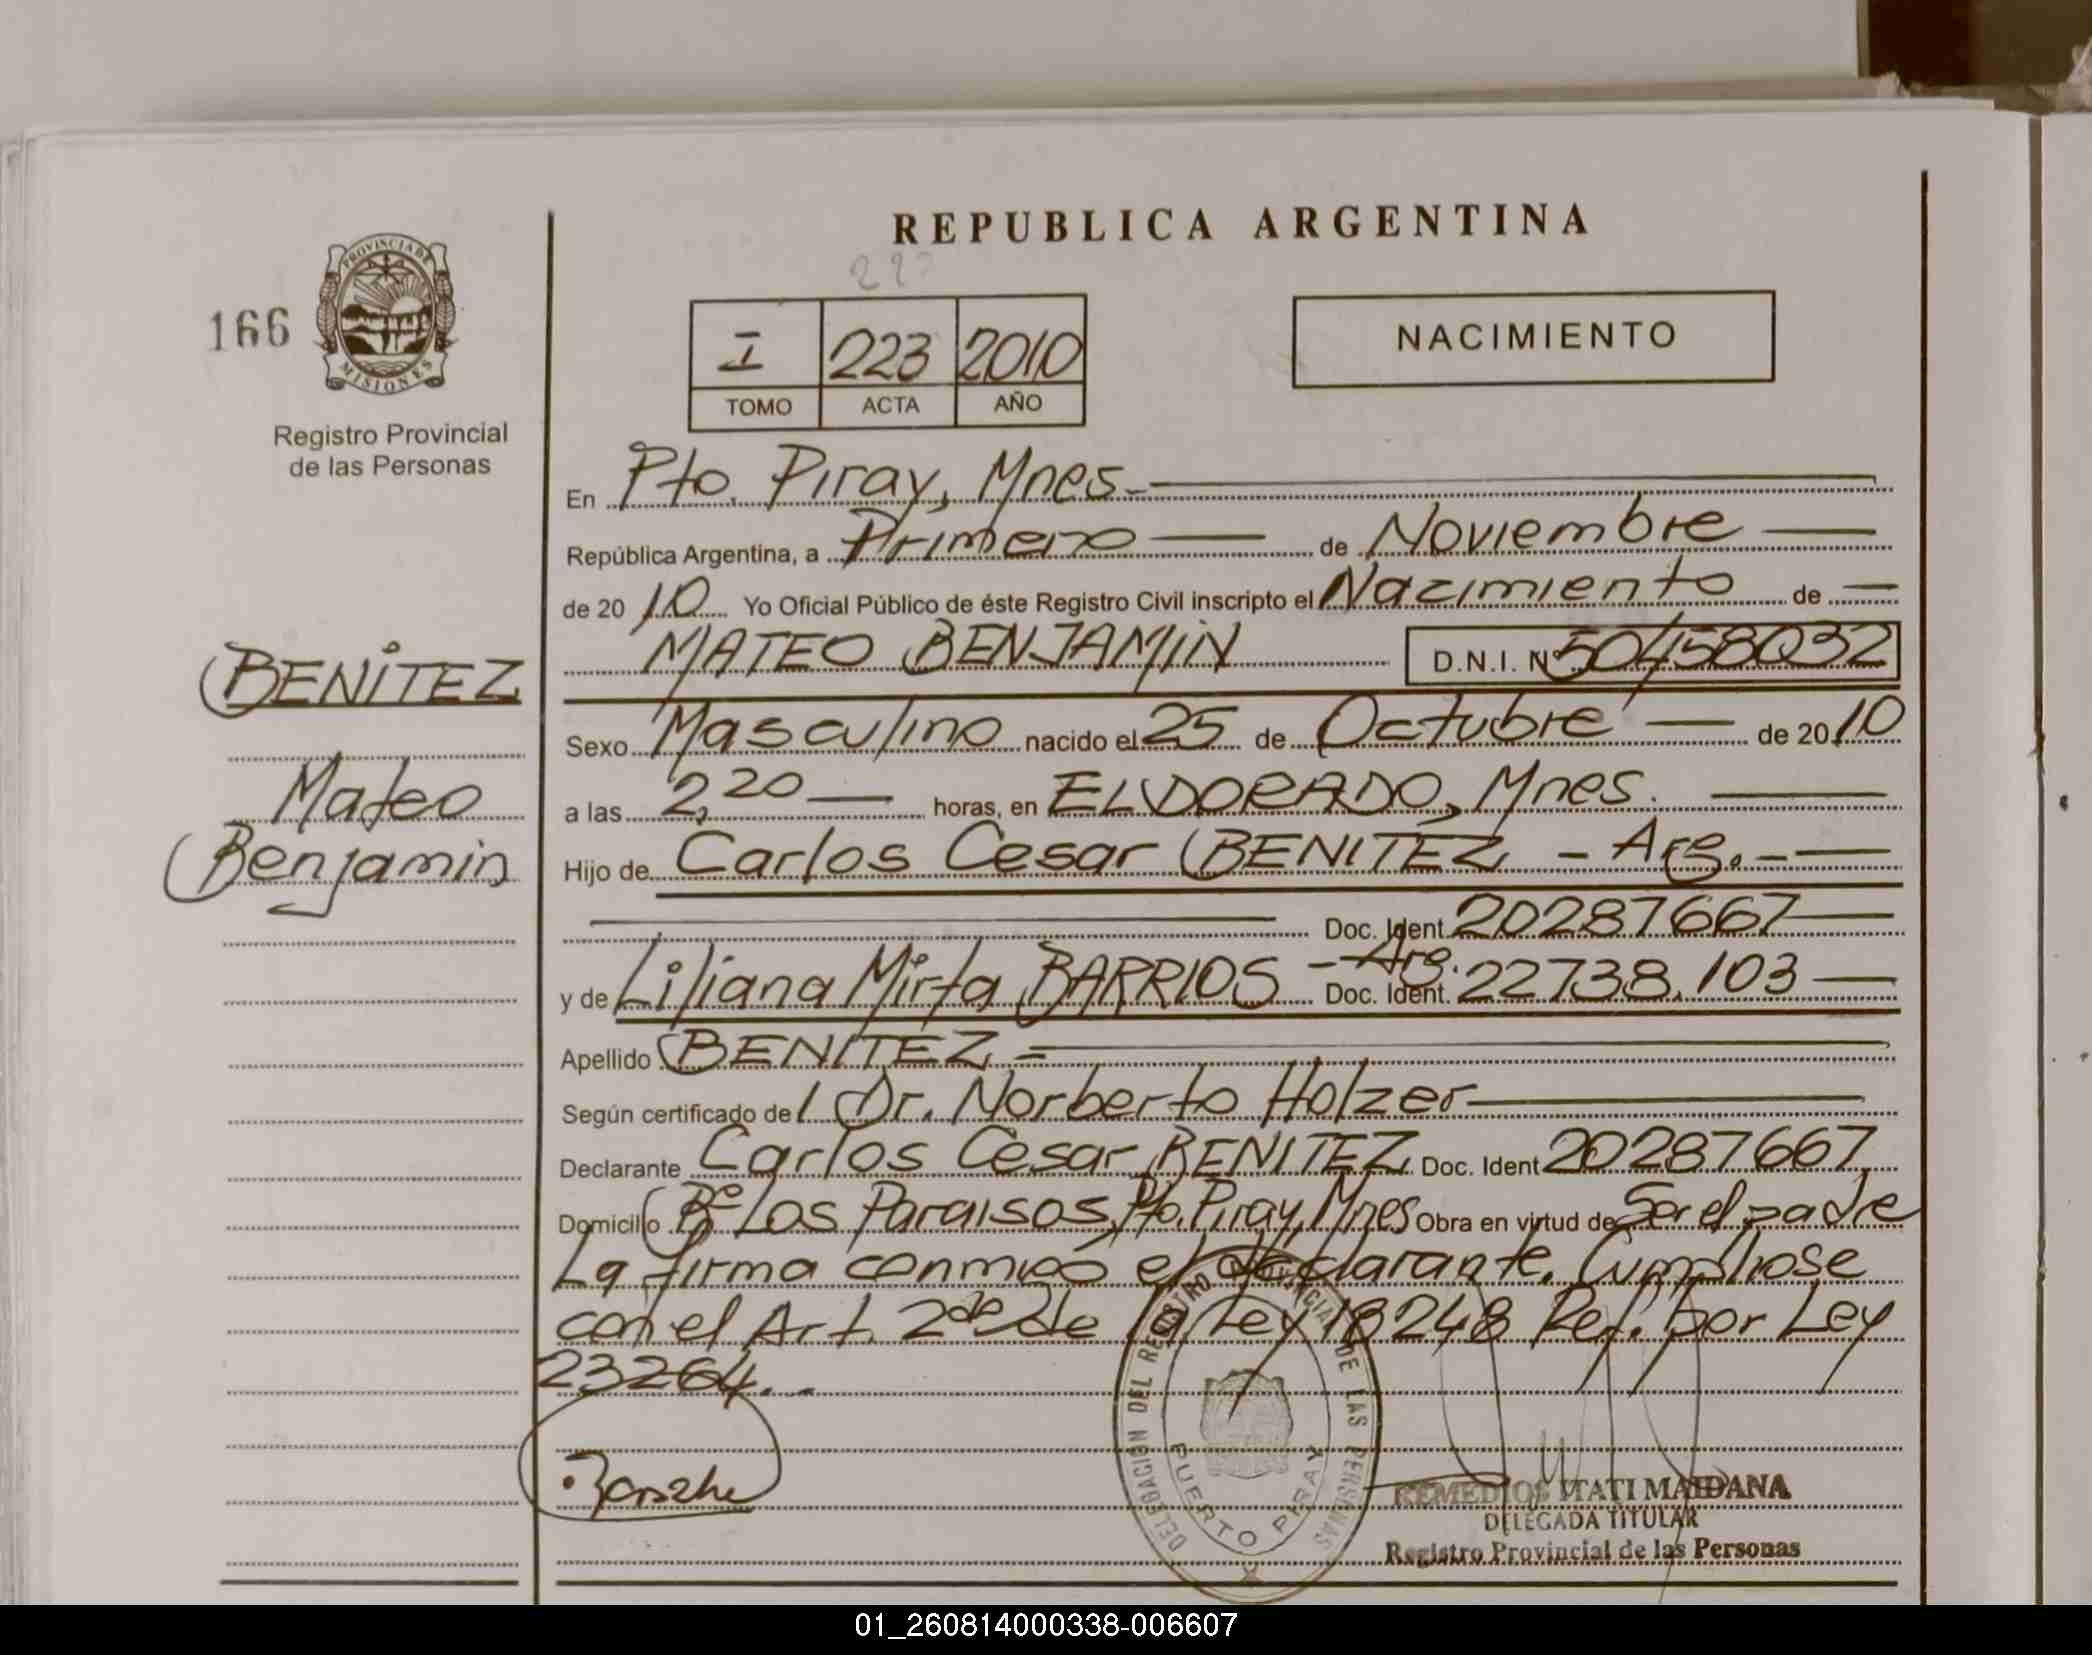 REPUBLICA ARGENTINA
166
PROVINCIA DE
MISIONES
Registro Provincial
de las Personas
I 223 2010
TOMO ACTA AÑO
NACIMIENTO
En Pto. Piray, Mnes.
República Argentina, a Primero de Noviembre
de 2010 Yo Oficial Público de éste Registro Civil inscripto el Nacimiento de
MATEO BENJAMIN D.N.I. Nº 50458032
BENITEZ
Mateo
Benjamin
Sexo Masculino nacido el 25 de Octubre de 2010
a las 2,20 horas, en ELDORADO, Mnes.
Hijo de Carlos Cesar BENITEZ - Arg. -
Doc. Ident. 20287667
y de Liliana Mirta BARRIOS - Arg. Doc. Ident. 22738.103
Apellido BENITEZ
Según certificado del Dr. Norberto Holzer
Declarante Carlos Cesar BENITEZ Doc. Ident 20287667
Domicilio Bº Los Paraisos, Pto. Piray, Mnes Obra en virtud de Ser el padre
La firma conmigo el declarante. Cumpliose
con el Art. 2do de la Ley 18248 Ref. por Ley
23264.
DELEGACIÓN DEL REGISTRO PROVINCIAL DE LAS PERSONAS
PUERTO PIRAY
REMEDIOS ITATI MAIDANA
DELEGADA TITULAR
Registro Provincial de las Personas
01_260814000338-006607